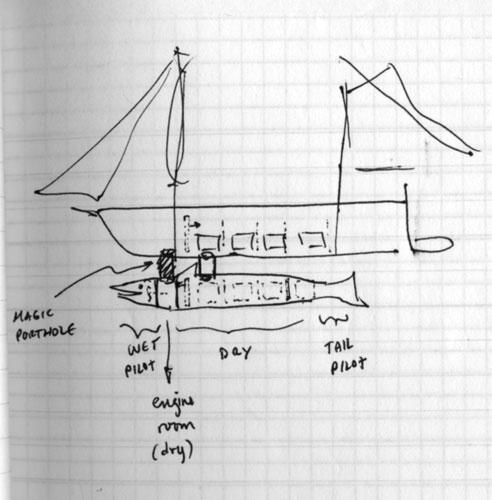 MAGIC
PORTHOLE
WET
PILOT
DRY
TAIL
PILOT
engine
room
(dry)